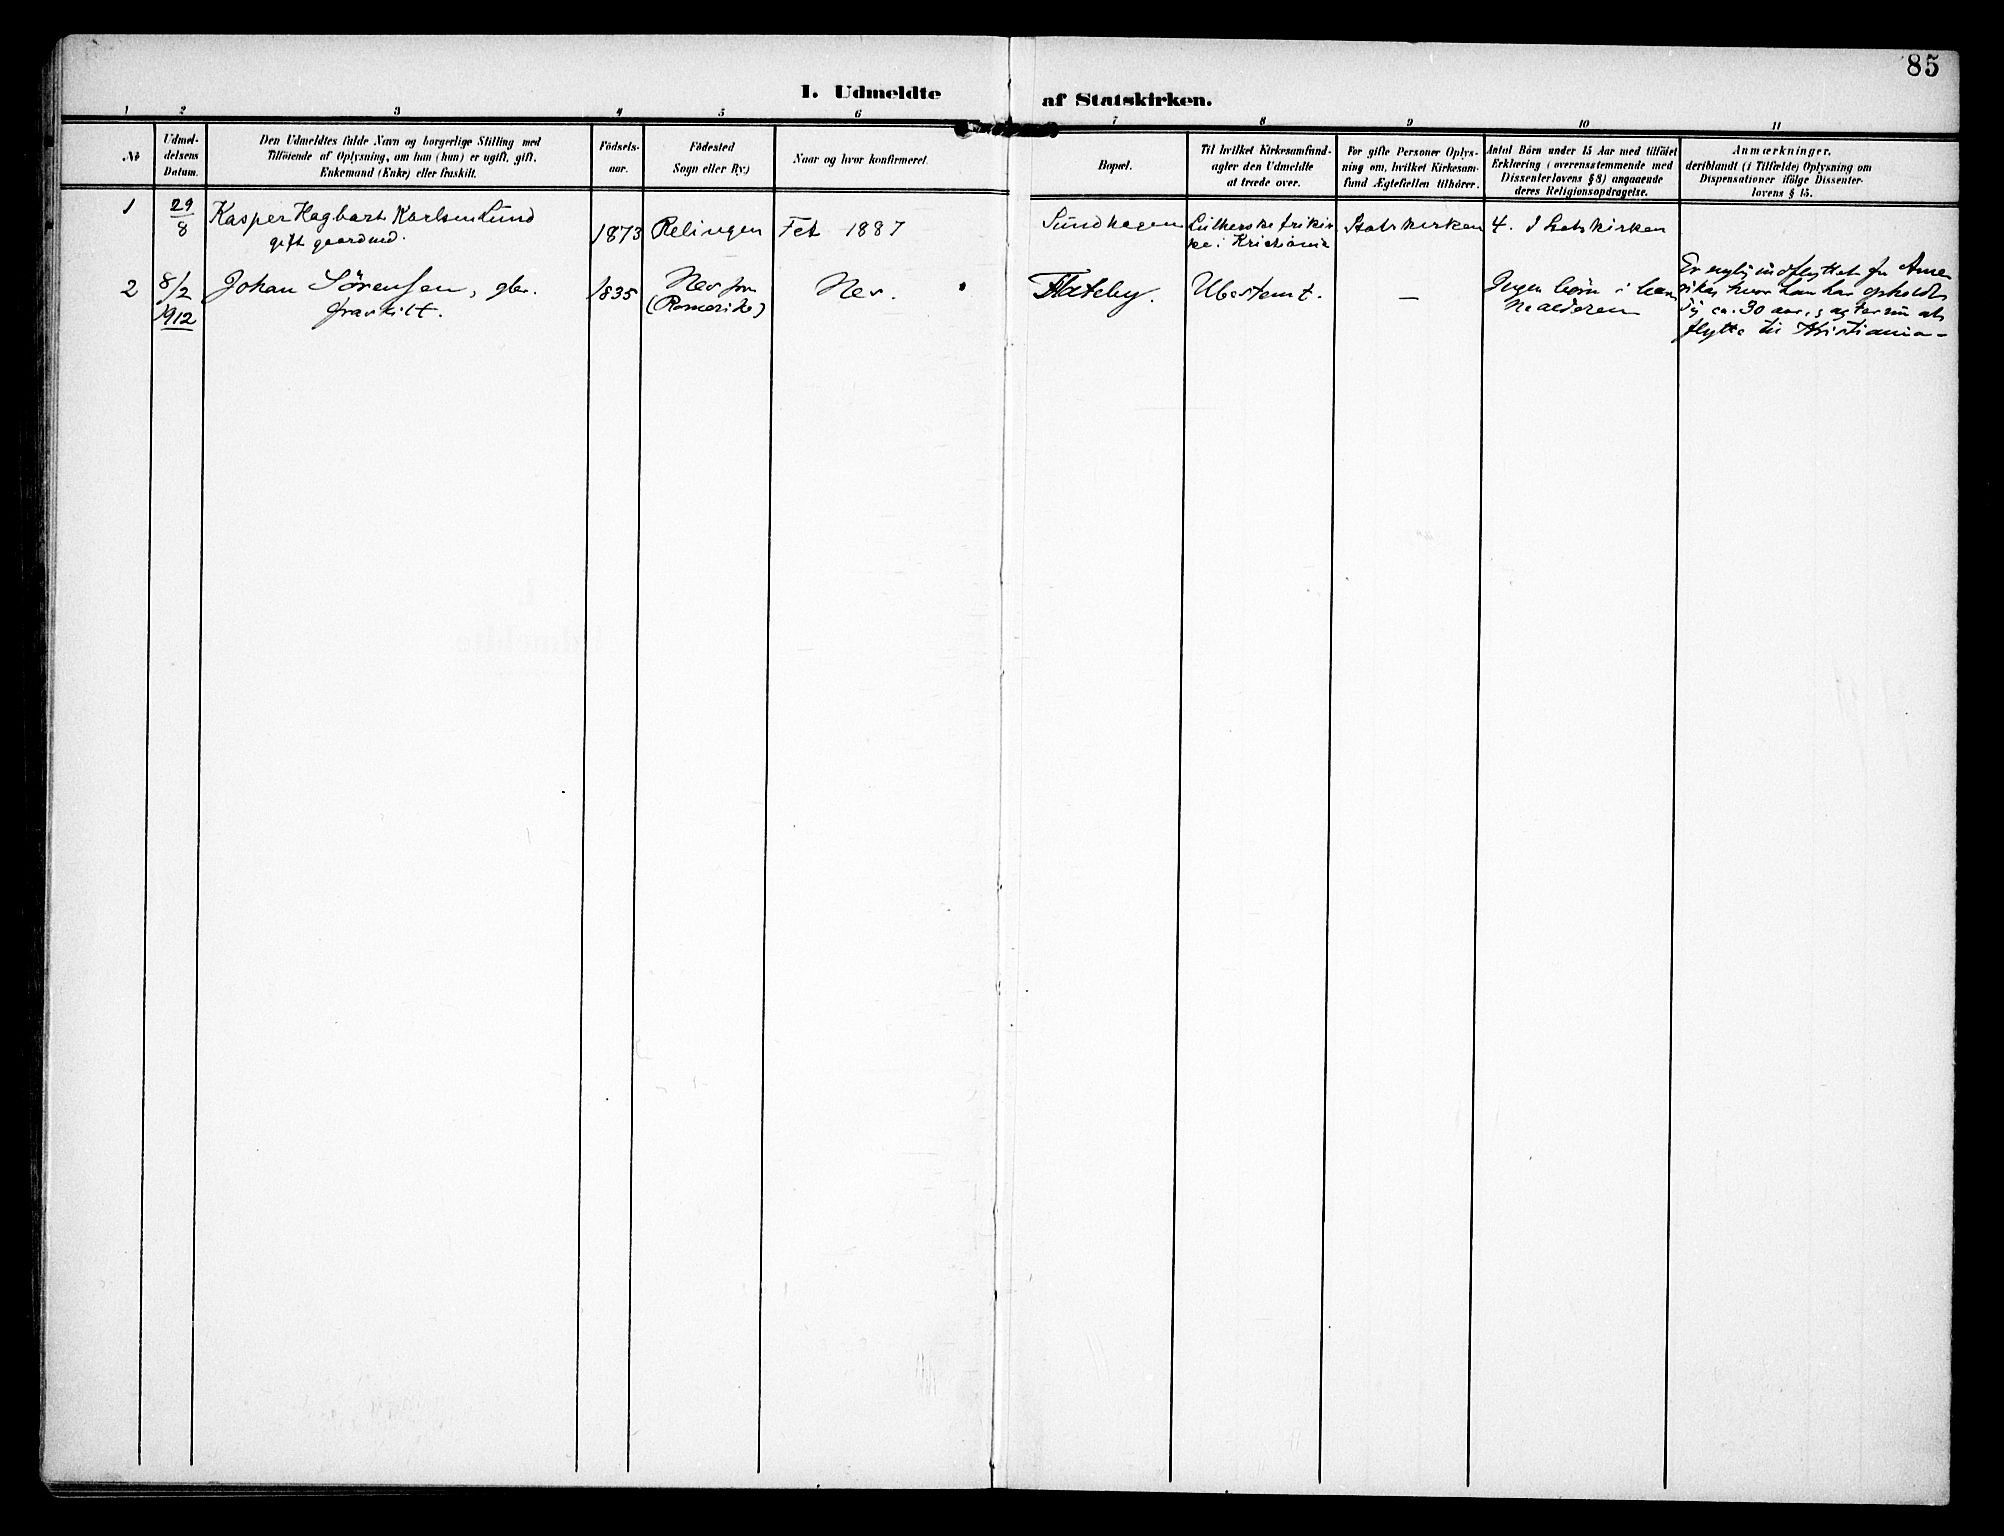 85
I. Udmeldte af Statskirken.
1 2 3 4 5 6 7 8 9 10 11
№
Udmel-
delsens
Datum.
Den Udmeldtes fulde Navn og borgerlige Stilling med
Tilföiende af Oplysning, om han (hun) er ugift, gift,
Enkemand (Enke) eller fraskilt.
Födsels-
aar.
Födested
Sogn eller By)
Naar og hvor konfirmeret.
Bopæl.
Til hvilket Kirkesamfund
agter den Udmeldte
at træde over.
For gifte Personer Oplys-
ning om, hvilket Kirkesam-
fund Ægtefællen tilhörer.
Antal Börn under 15 Aar med tilföiet
Erklæring (overensstemmende med
Dissenterlovens § 8) angaaende
deres Religionsopdragelse.
Anmærkninger,
deriblandt (i Tilfælde) Oplysning om
Dispensationer ifölge Dissenter-
lovens § 15.
1
29/8
Kasper Hagbart Karlsen Lund
gift gaardmd.
1873
Relingen
Fet 1887
Sundhagen
Lutherske frikir
ke i Kristiania
Statskirken
4. I Statskirken
2
8/2
1912
Johan Sörensen, gbr.
fraskilt.
1835
Nes
(Romerike)
Nes.
Flateby.
Ubestemt.
—
Ingen börn i
nealderen
Er nylig indflyttet fra Ame
rika, hvor han har opholdt
sig ca. 30 aar, agter
flytte til Kristiania -